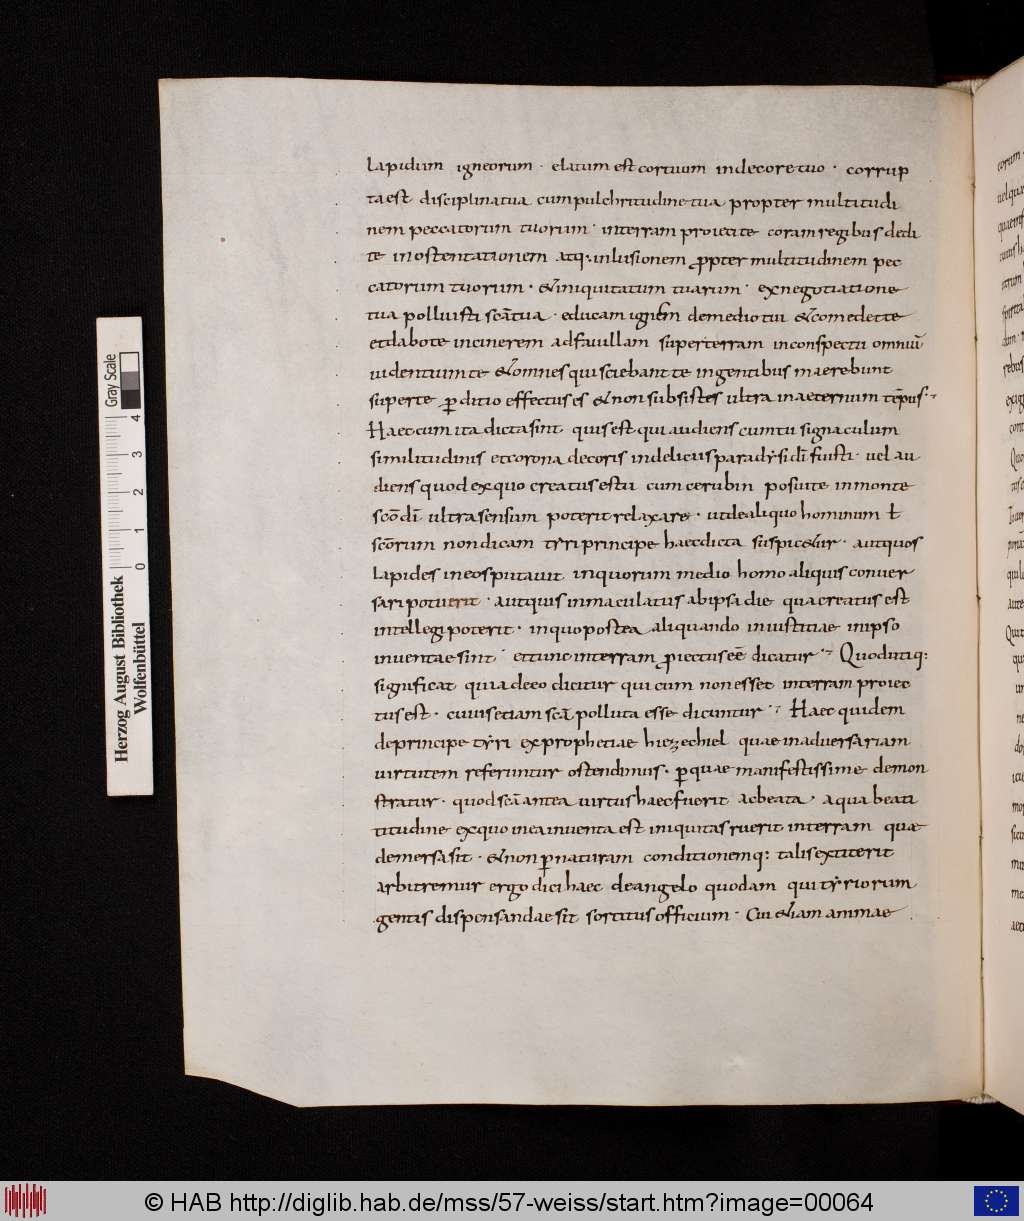 lapidum igneorum · elatum est cortuum indecore tuo · corrup
ta est disciplina tua cum pulchritudine tua propter multitudi
nem peccatorum tuorum · interram proieci te coram regibus dedi
te inostentationem atq: inlusionem ꝓpter multitudinem pec
catorum tuorum · & iniquitatum tuarum · exnegotiatione
tua polluisti scā tua · educam ignem demedio tui & comedet te
et dabo te incinerem adfauillam super terram inconspectu omniū
uidentium te & omnes qui sciebant te ingentibus maerebunt
super te ꝑditio effectus es & non subsistes ultra inaeternum tēpus ·
Haec cum ita dicta sint quis est qui audiens eum tu signaculum
similitudinis et corona decoris indeliciis paradysi dī fuisti · uel au
diens quod exquo creatus es tu cum cerubin posui te inmonte
scō dī ultra sensum poterit relaxare · ut de aliquo hominum ł
scōrum non dicam tyri principe haec dicta suspic&ur · aut quos
lapides ineos putauit inquorum medio homo aliquis conuer
sari potuerit · aut quis inmaculatus abipsa die qua creatus est
intellegi poterit · inquo postea aliquando iniustitiae inipso
inuentae sint · et tunc interram ꝓiectus eē dicatur · Quod utiq:
significat quia deeo dicitur qui cum non esset interram proiec
tus est · cuius etiam scā polluta esse dicuntur · Haec quidem
deprincipe tyri exprophetiae hiezechiel quae inaduersariam
uirtutem referuntur ostendimus · ꝑquae manifestissime demon
stratur · quod scā antea uirtus haec fuerit ac beata · a qua beati
titudine exquo inea inuenta est iniquitas ruerit interram quae
demersa sit · & non ꝑ naturam conditionemq: talis extiterit
arbitremur ergo dici haec de angelo quodam qui tyriorum
gentis dispensandae sit sortitus officium · Cui &iam animae
Gray Scale
0 1 2 3 4
Herzog August Bibliothek
Wolfenbüttel
© HAB http://diglib.hab.de/mss/57-weiss/start.htm?image=00064